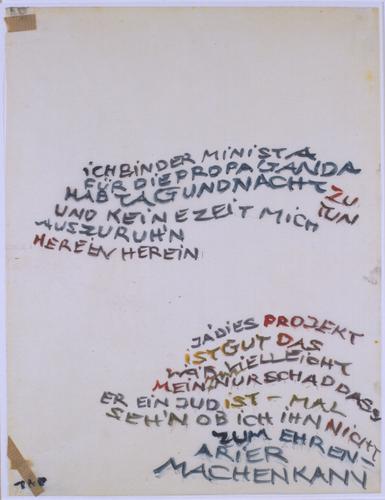 ICH BIN DER MINISTA
FÜR DIE PROPAGANDA
HAB TAG UND NACHT ZU
TUN
UND KEINE ZEIT MICH
AUSZURUHN
HEREIN HEREIN
JA DIES PROJEKT
IST GUT DAS
WÄR VIELLEICHT
MEIN NUR SCHAD DASS
ER EIN JUD IST – MAL
SEH'N OB ICH IHN NICHT
ZUM EHREN-
ARIER
MACHEN KANN